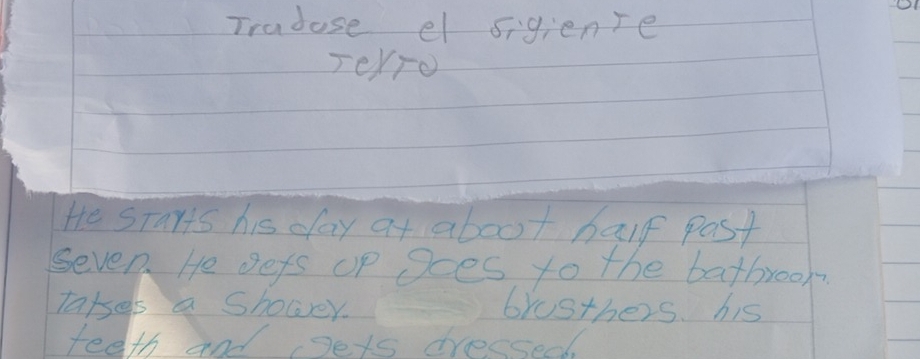 Traduse el sigiente
Texto
He starts his day at aboot half past
seven. He gets up goes to the bathroom.
Takes a shower. brusthers. his
teeth and gets dressed.